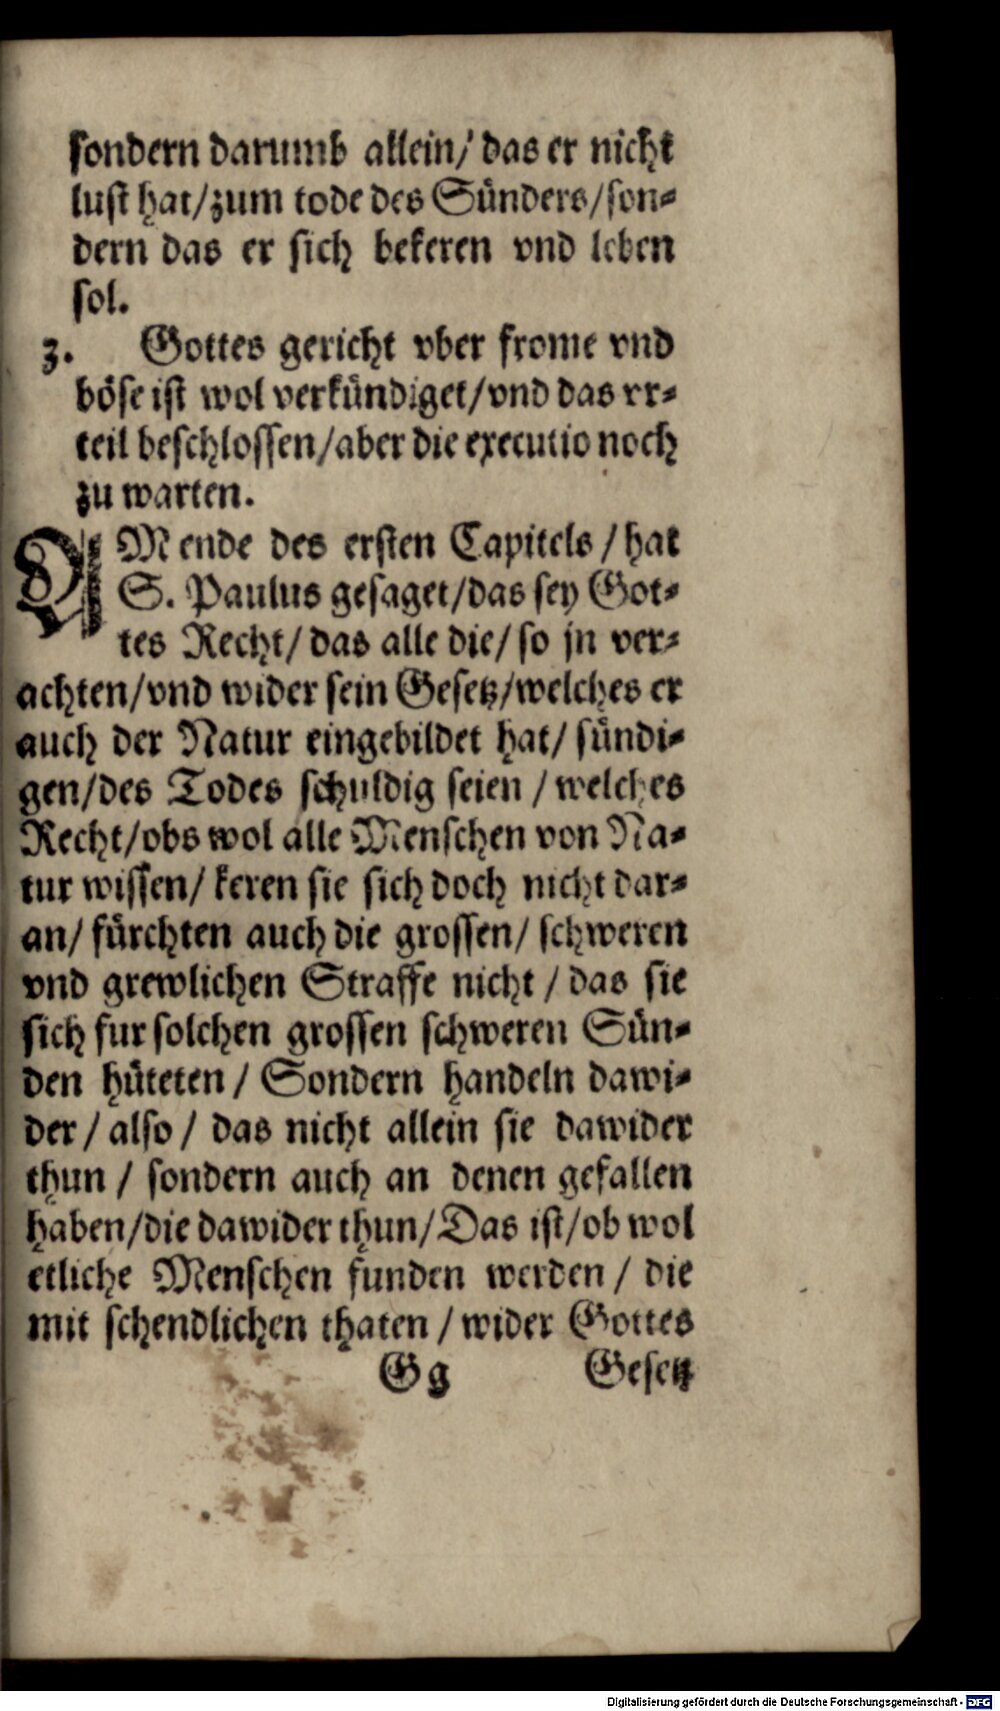 sondern darumb allein/ das er nicht
lust hat/zum tode des Sünders/son-
dern das er sich bekeren vnd leben
sol.
3. Gottes gericht vber frome vnd
böse ist wol verkündiget/vnd das vr-
teil beschlossen/aber die executio noch
zu warten.
AM ende des ersten Capitels / hat
S. Paulus gesaget/das sey Got-
tes Recht/ das alle die/ so jn ver-
achten/vnd wider sein Gesetz/welches er
auch der Natur eingebildet hat/ sündi-
gen/des Todes schuldig seien / welches
Recht/obs wol alle Menschen von Na-
tur wissen/ keren sie sich doch nicht dar-
an/ fürchten auch die grossen/ schweren
vnd grewlichen Straffe nicht / das sie
sich fur solchen grossen schweren Sün-
den hüteten / Sondern handeln dawi-
der / also / das nicht allein sie dawider
thun / sondern auch an denen gefallen
haben/die dawider thun/Das ist/ob wol
etliche Menschen funden werden / die
mit schendlichen thaten / wider Gottes
Gg Gesetz
Digitalisierung gefördert durch die Deutsche Forschungsgemeinschaft - DFG